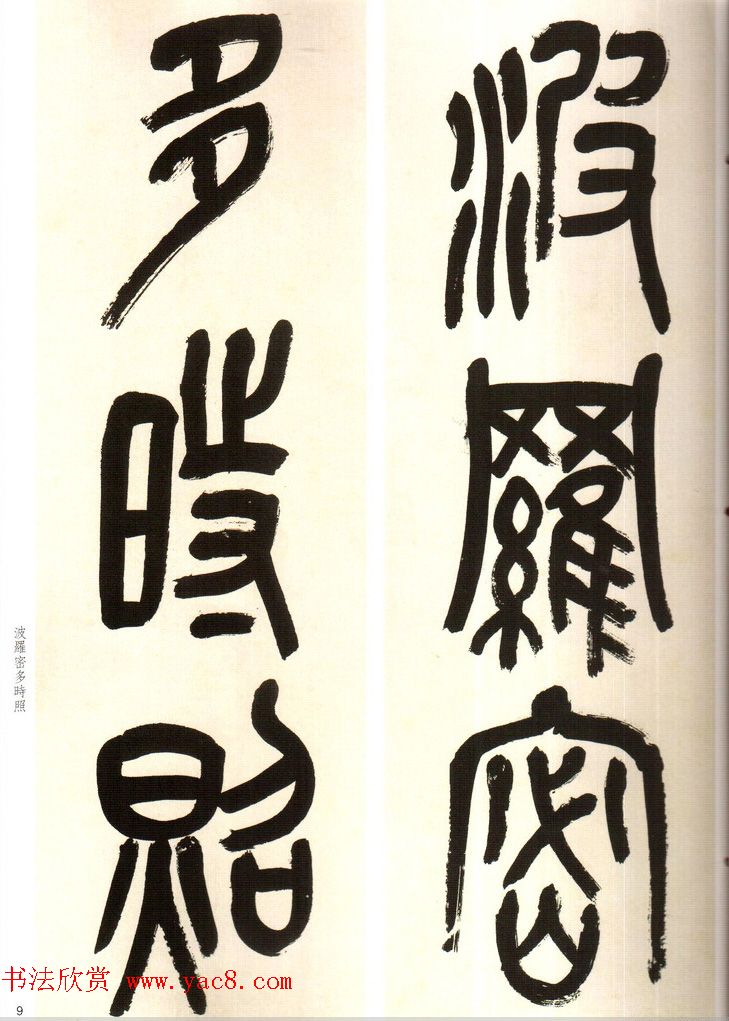 波羅密
多時照
波羅密多時照
书法欣赏 www.yac8.com
9